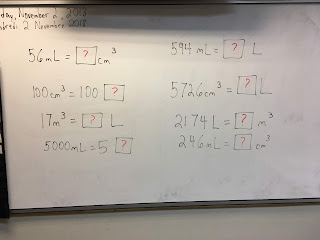 day, November 2, 2018
dredi 2 Novembre 2018
56mL = ? cm³
594 mL = ? L
100cm³ = 100 ?
5726cm³ = ? L
17m³ = ? L
2174L = ? m³
5000mL = 5 ?
246mL = ? cm³